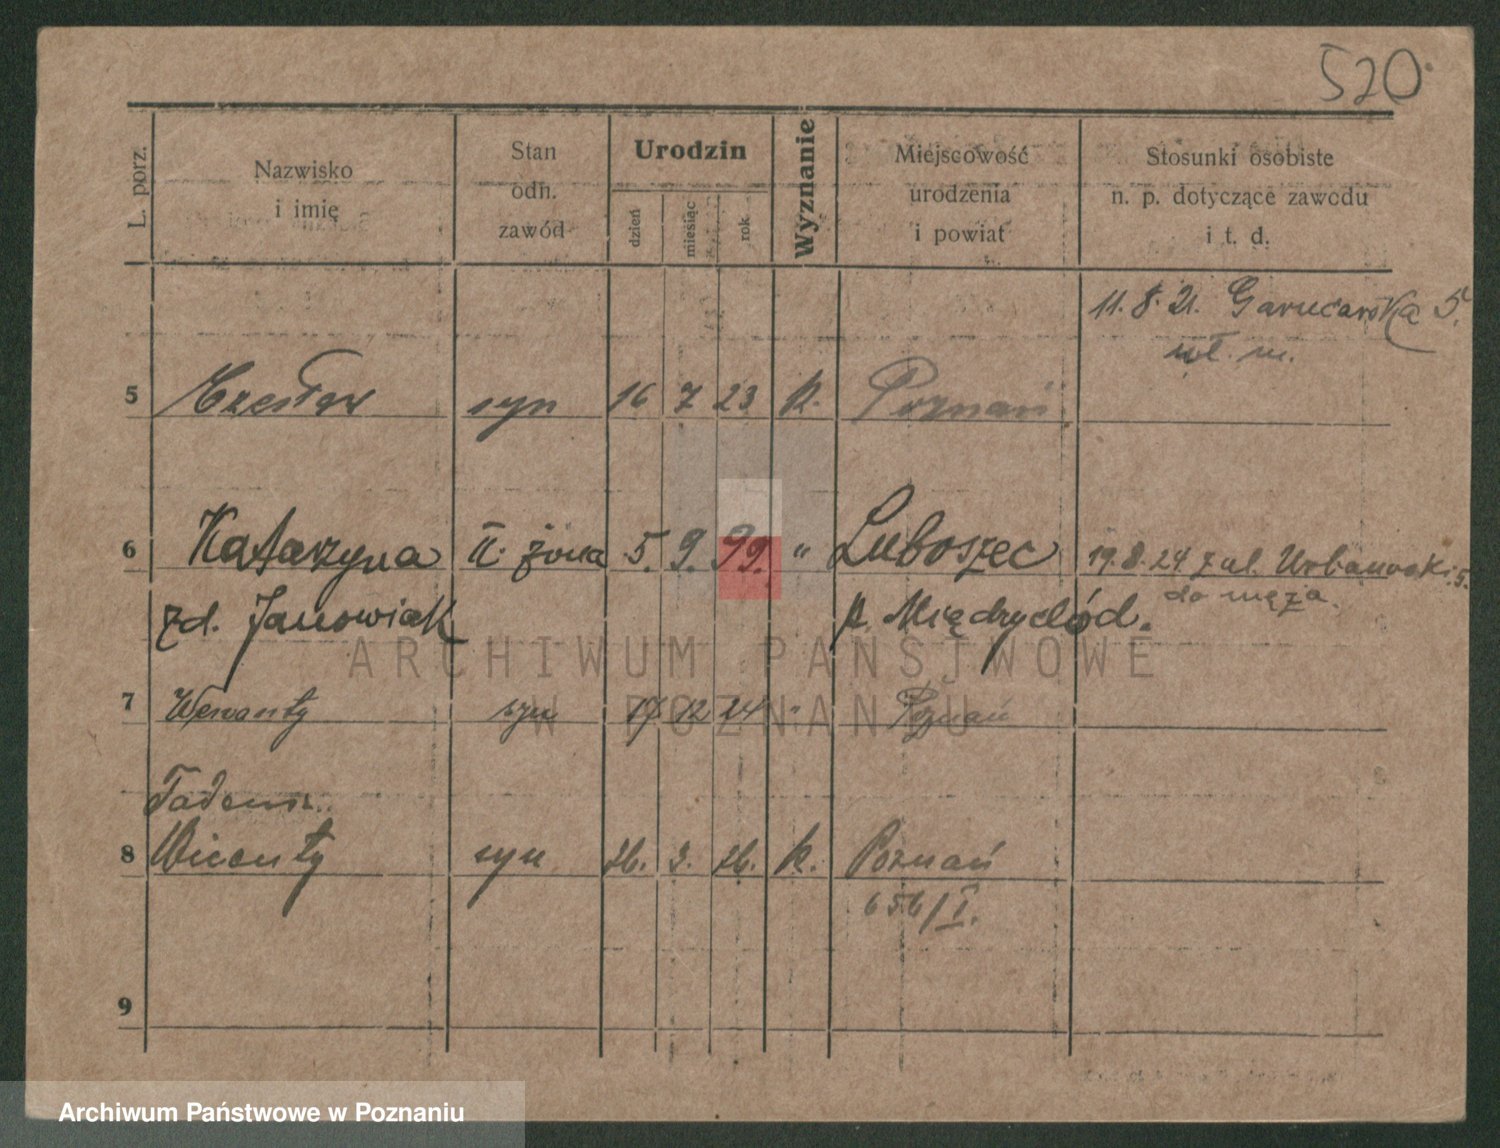 520
L. porz.
Nazwisko
i imię
Stan
odn.
zawód
Urodzin
dzień
miesiąc
rok
Wyznanie
Miejscowość
urodzenia
i powiat
Stosunki osobiste
n. p. dotyczące zawodu
i t. d.
11. 8. 21. Garncarska 5.
wł. m.
5 Czesław syn 16 7 23 k. Poznań
6 Katarzyna II. żona 5. 9. 99. " Luboszec 19. 8. 24 zal. Urbanowska 5.
do męża.
zd. Janowiak p. Międrychód.
7 Wenanty syn 17 12 24 " Poznań
Tadeusz
8 Wicenty syn 26. 3. 26. k. Poznań
656/I.
9
ARCHIWUM PAŃSTWOWE
W POZNANIU
Archiwum Państwowe w Poznaniu